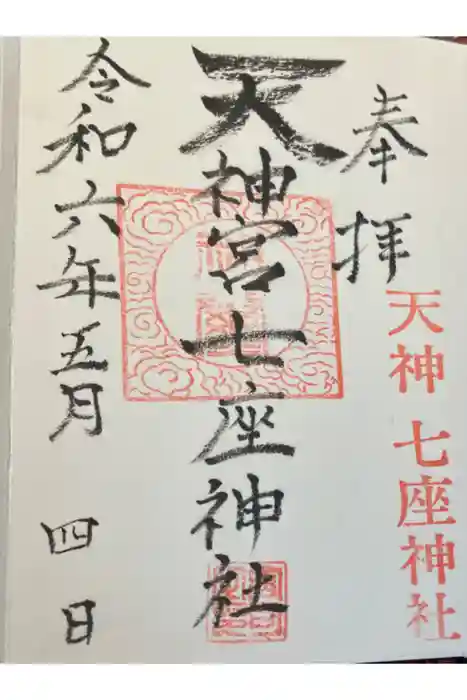 奉拝
天神 七座神社
天神宮七座神社
令和六年五月 四日